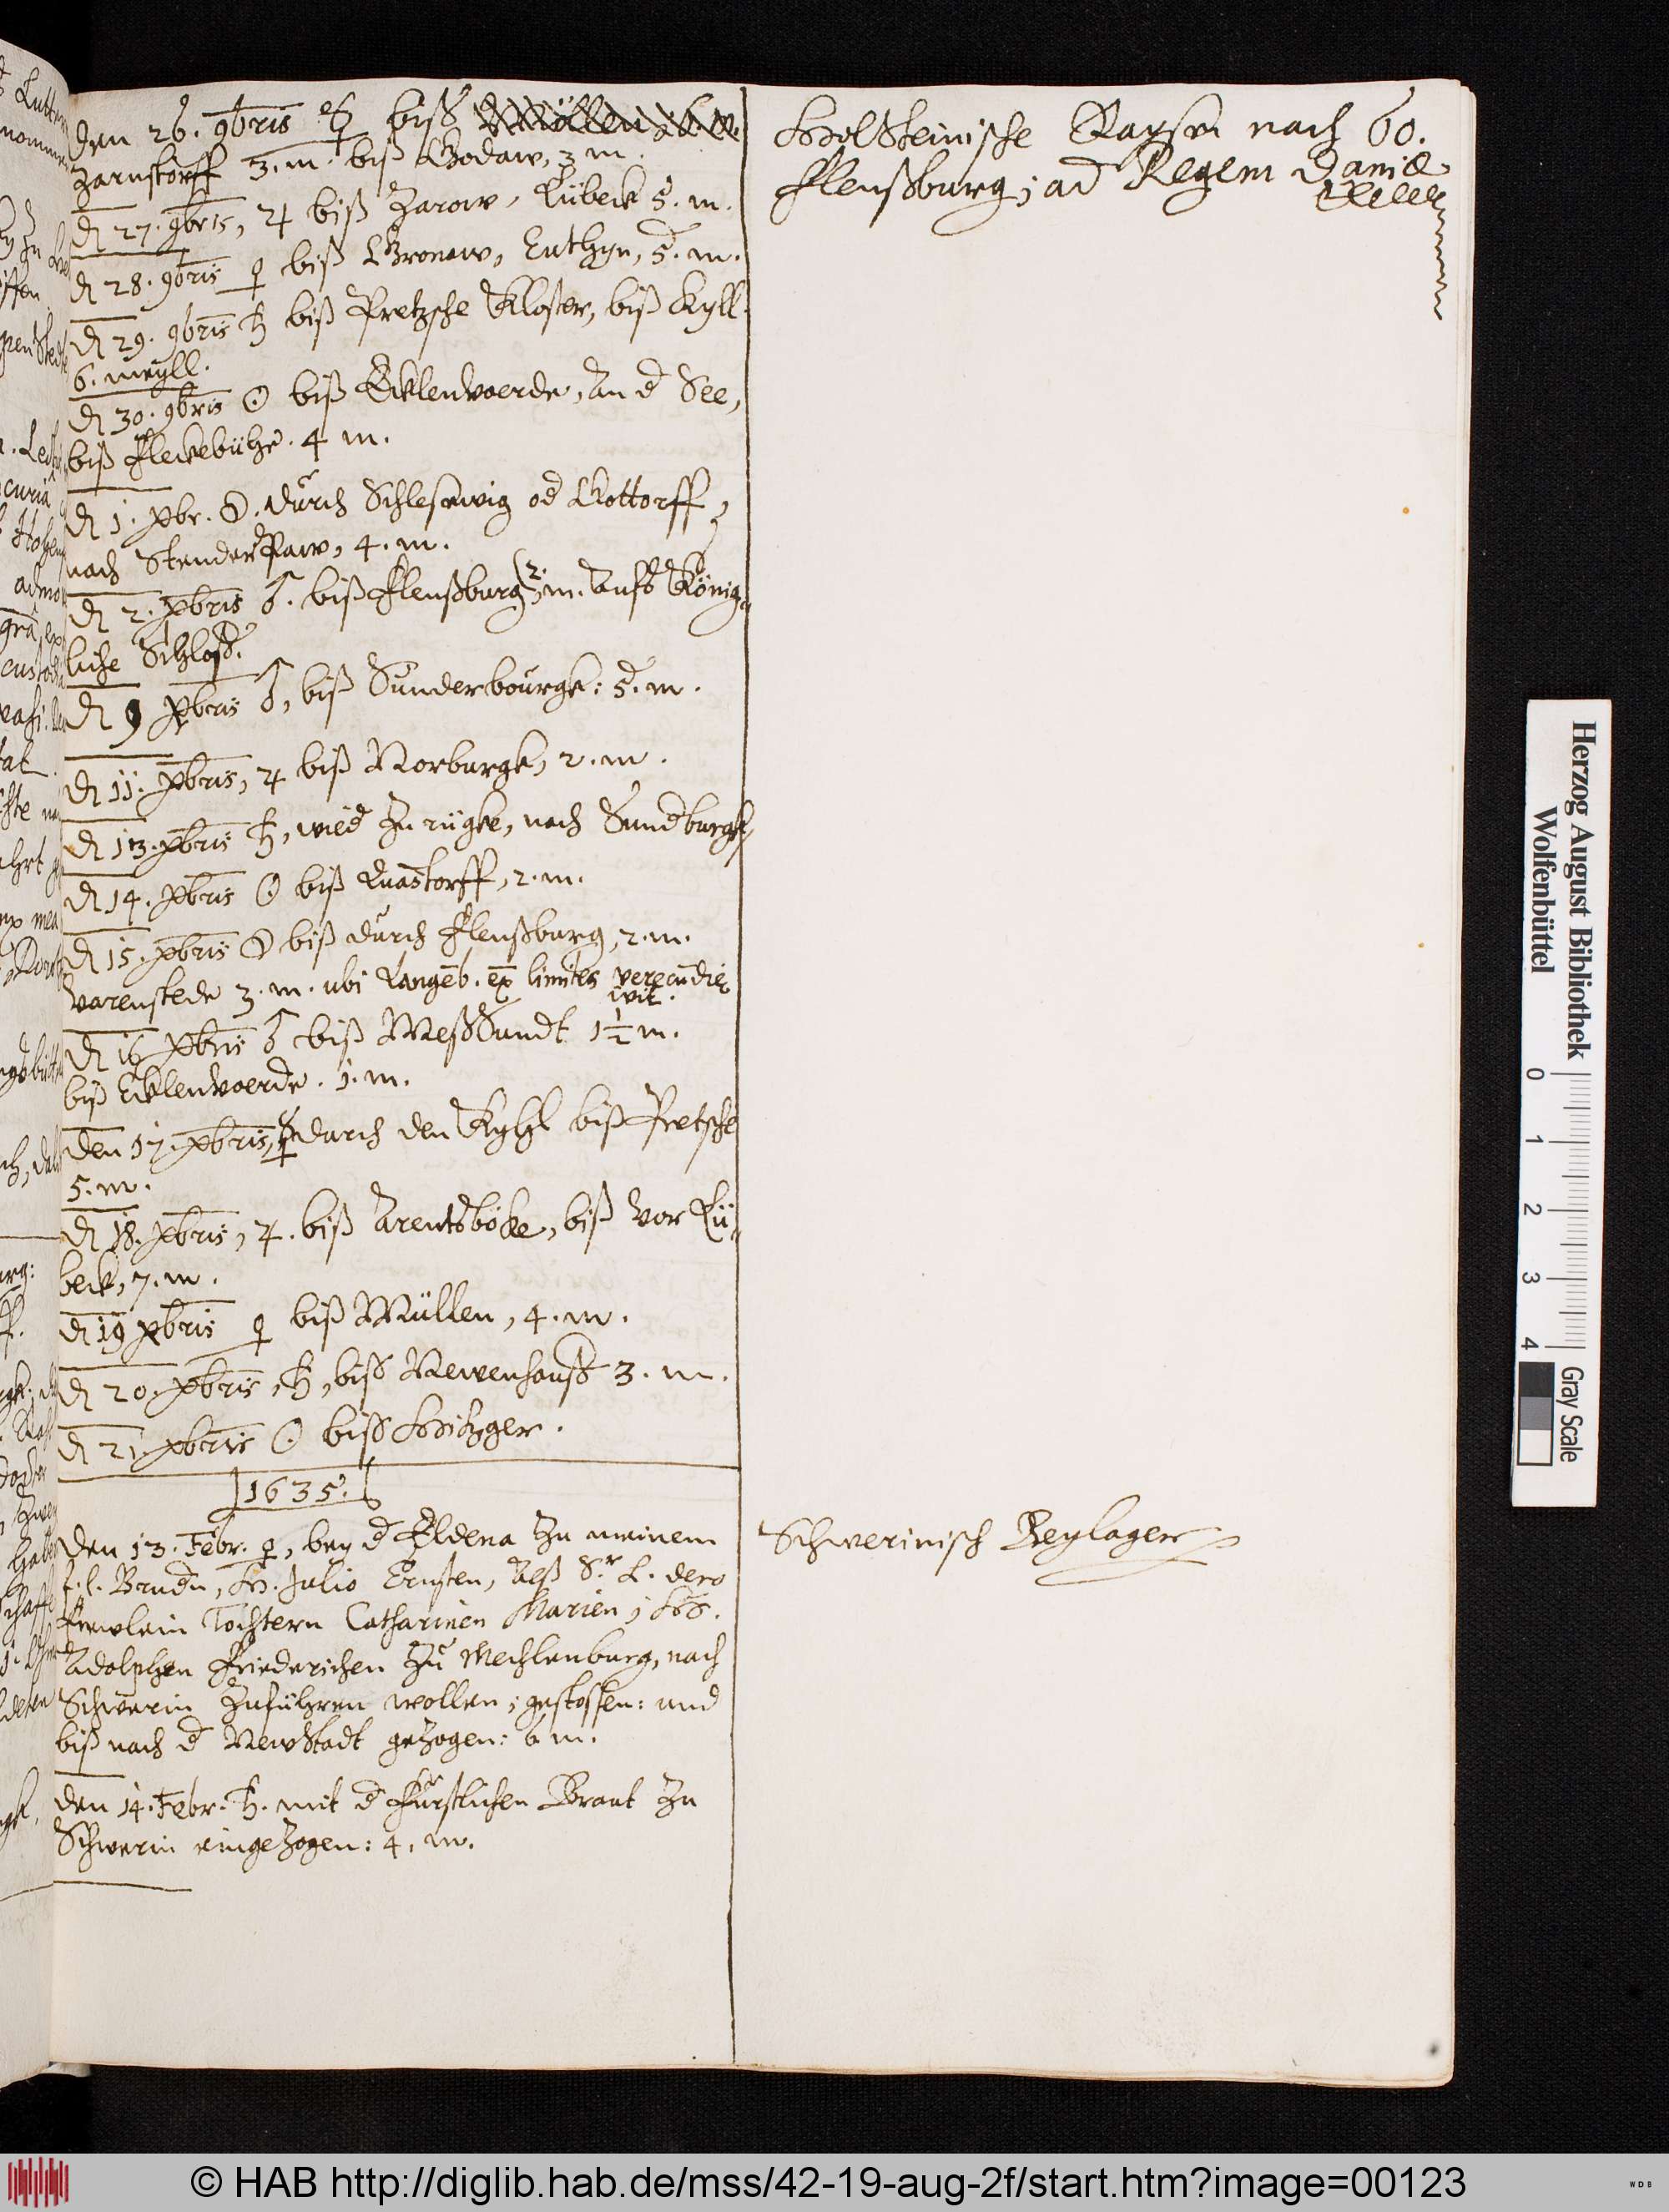 den 26. 9bris ☿ biß
Zarnstorff 3. m. biß Godaw, 3 m.
d 27. 9bris, ♃ biß Zarow, Lübeck 5. m.
d 28. 9bris ♀ biß Gronaw, Euthyn, 5. m.
d 29. 9bris ♄ biß Pretzsche Kloster, biß Kyll
6. meyll.
d 30. 9bris ☉ biß Ecklenvoerde, An d See,
biß Fleckebühe. 4 m.
d 1. xbr. ☽. durch Schleswig od Gottorff,
nach StenderPaw, 4. m.
d 2. xbris ♂. biß Flensburg, 2. m. Aufs König-
liche Schloß.
d 9 xbris ♂, biß Sunderbourgk: 5. m.
d 11. xbris, ♃ biß Norburgk, 2. m.
d 13. xbris ♄, wied Zu rügke, nach Sundburgk,
d 14. xbris ☉ biß Quastorff, 2. m.
d 15. xbris ☽ biß durch Flensburg, 2. m.
Varenstede 3. m. ubi Langeb. ex limites
d 16 xbris ♂ biß MeßSundt 1½ m.
biß Ecklenvoerde. 1. m.
den 17. xbris, ☿ durch den Kyhl biß Pretsche
5. m.
d 18. xbris, ♃. biß Arentsböke, biß vor Lü-
beck, 7. m.
d 19 xbris ♀ biß Müllen, 4. m.
d 20. xbris, ♄, biß Newenhauß 3. m.
d 21. xbris ☉ biß Hitzger.
1635.
den 13. Febr. ♀, bey d Eldena Zu meinem
f. l. Brudn, H. Julio Ernsten, Alß Sr. L. dero
Frewlein Tochtern Catharinen Marien; HH.
Adolphen Friederichen Zu Mechlenburg, nach
Schwerin Zuführen wollen; gestossen: und
biß nach d NewStadt gezogen: 6 m.
den 14. Febr. ♄. mit d Fürstlichen Braut Zu
Schwerin eingezogen: 4. m.
HolSteinische Raysen nach 60.
Flensburg; ad Regem Daniæ
Schwerinisch Beylager
Herzog August Bibliothek
Wolfenbüttel
0 1 2 3 4 Gray Scale
© HAB http://diglib.hab.de/mss/42-19-aug-2f/start.htm?image=00123
WDB